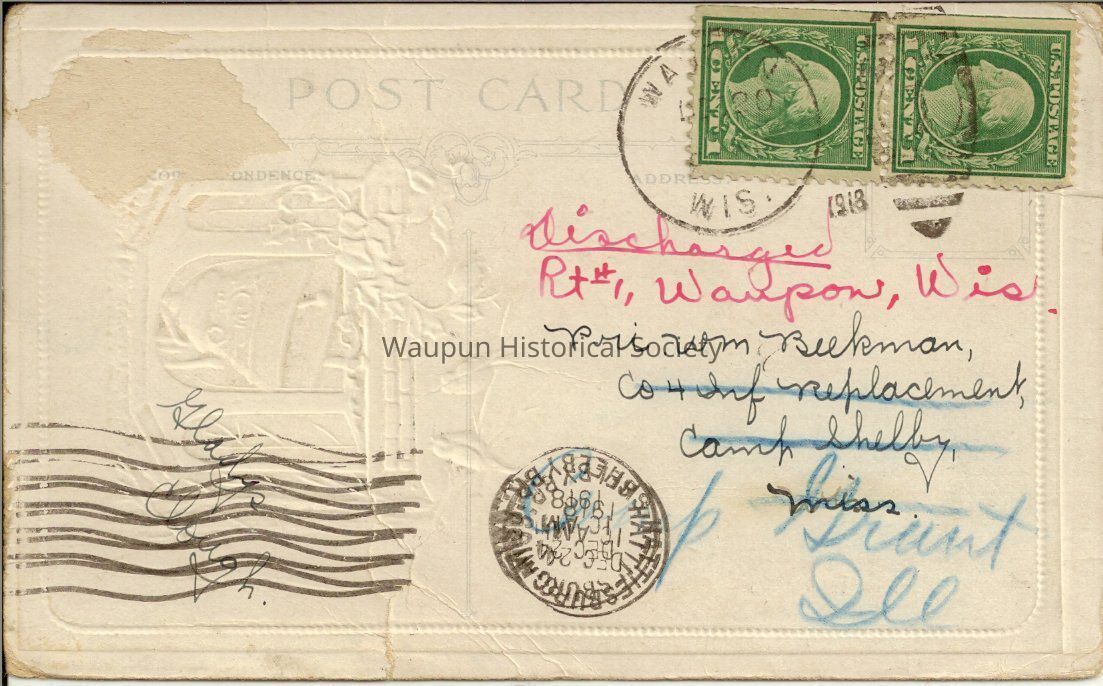 POST CARD
CORRESPONDENCE
ADDRESS
U.S. POSTAGE
1 ONE CENT 1
U.S. POSTAGE
1 ONE CENT 1
20
WIS.
1918
Discharged
Rt #1, Waupon, Wis.
Waupun Historical Society
Pri. Wm. Beekman,
Co 4 Inf Replacement,
Camp Shelby,
Miss.
Camp Grant
Ill
HATTIESBURG MISS SHELBY BR.
DEC 24
11 AM
1918
Gladys
Clough.